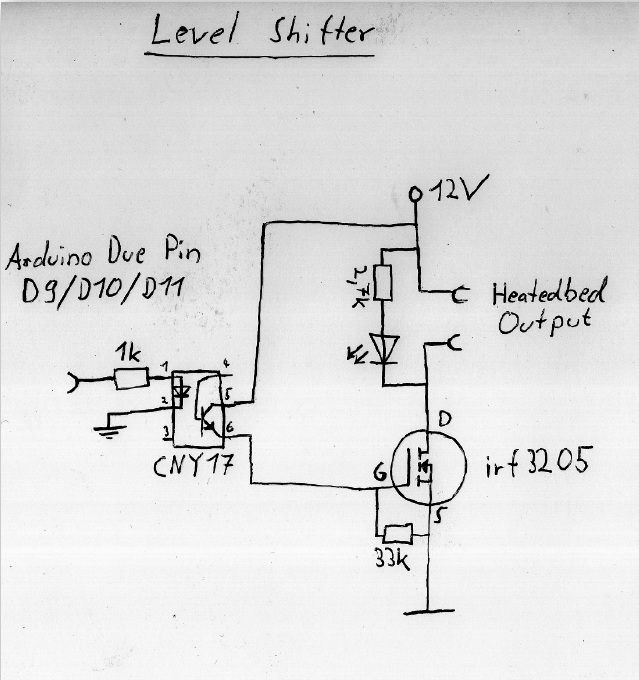 Level Shifter
12V
Arduino Due Pin
D9/D10/D11
2,7k
Heatedbed
Output
1k
1
4
2
5
3
6
CNY17
D
G
irf3205
S
33k